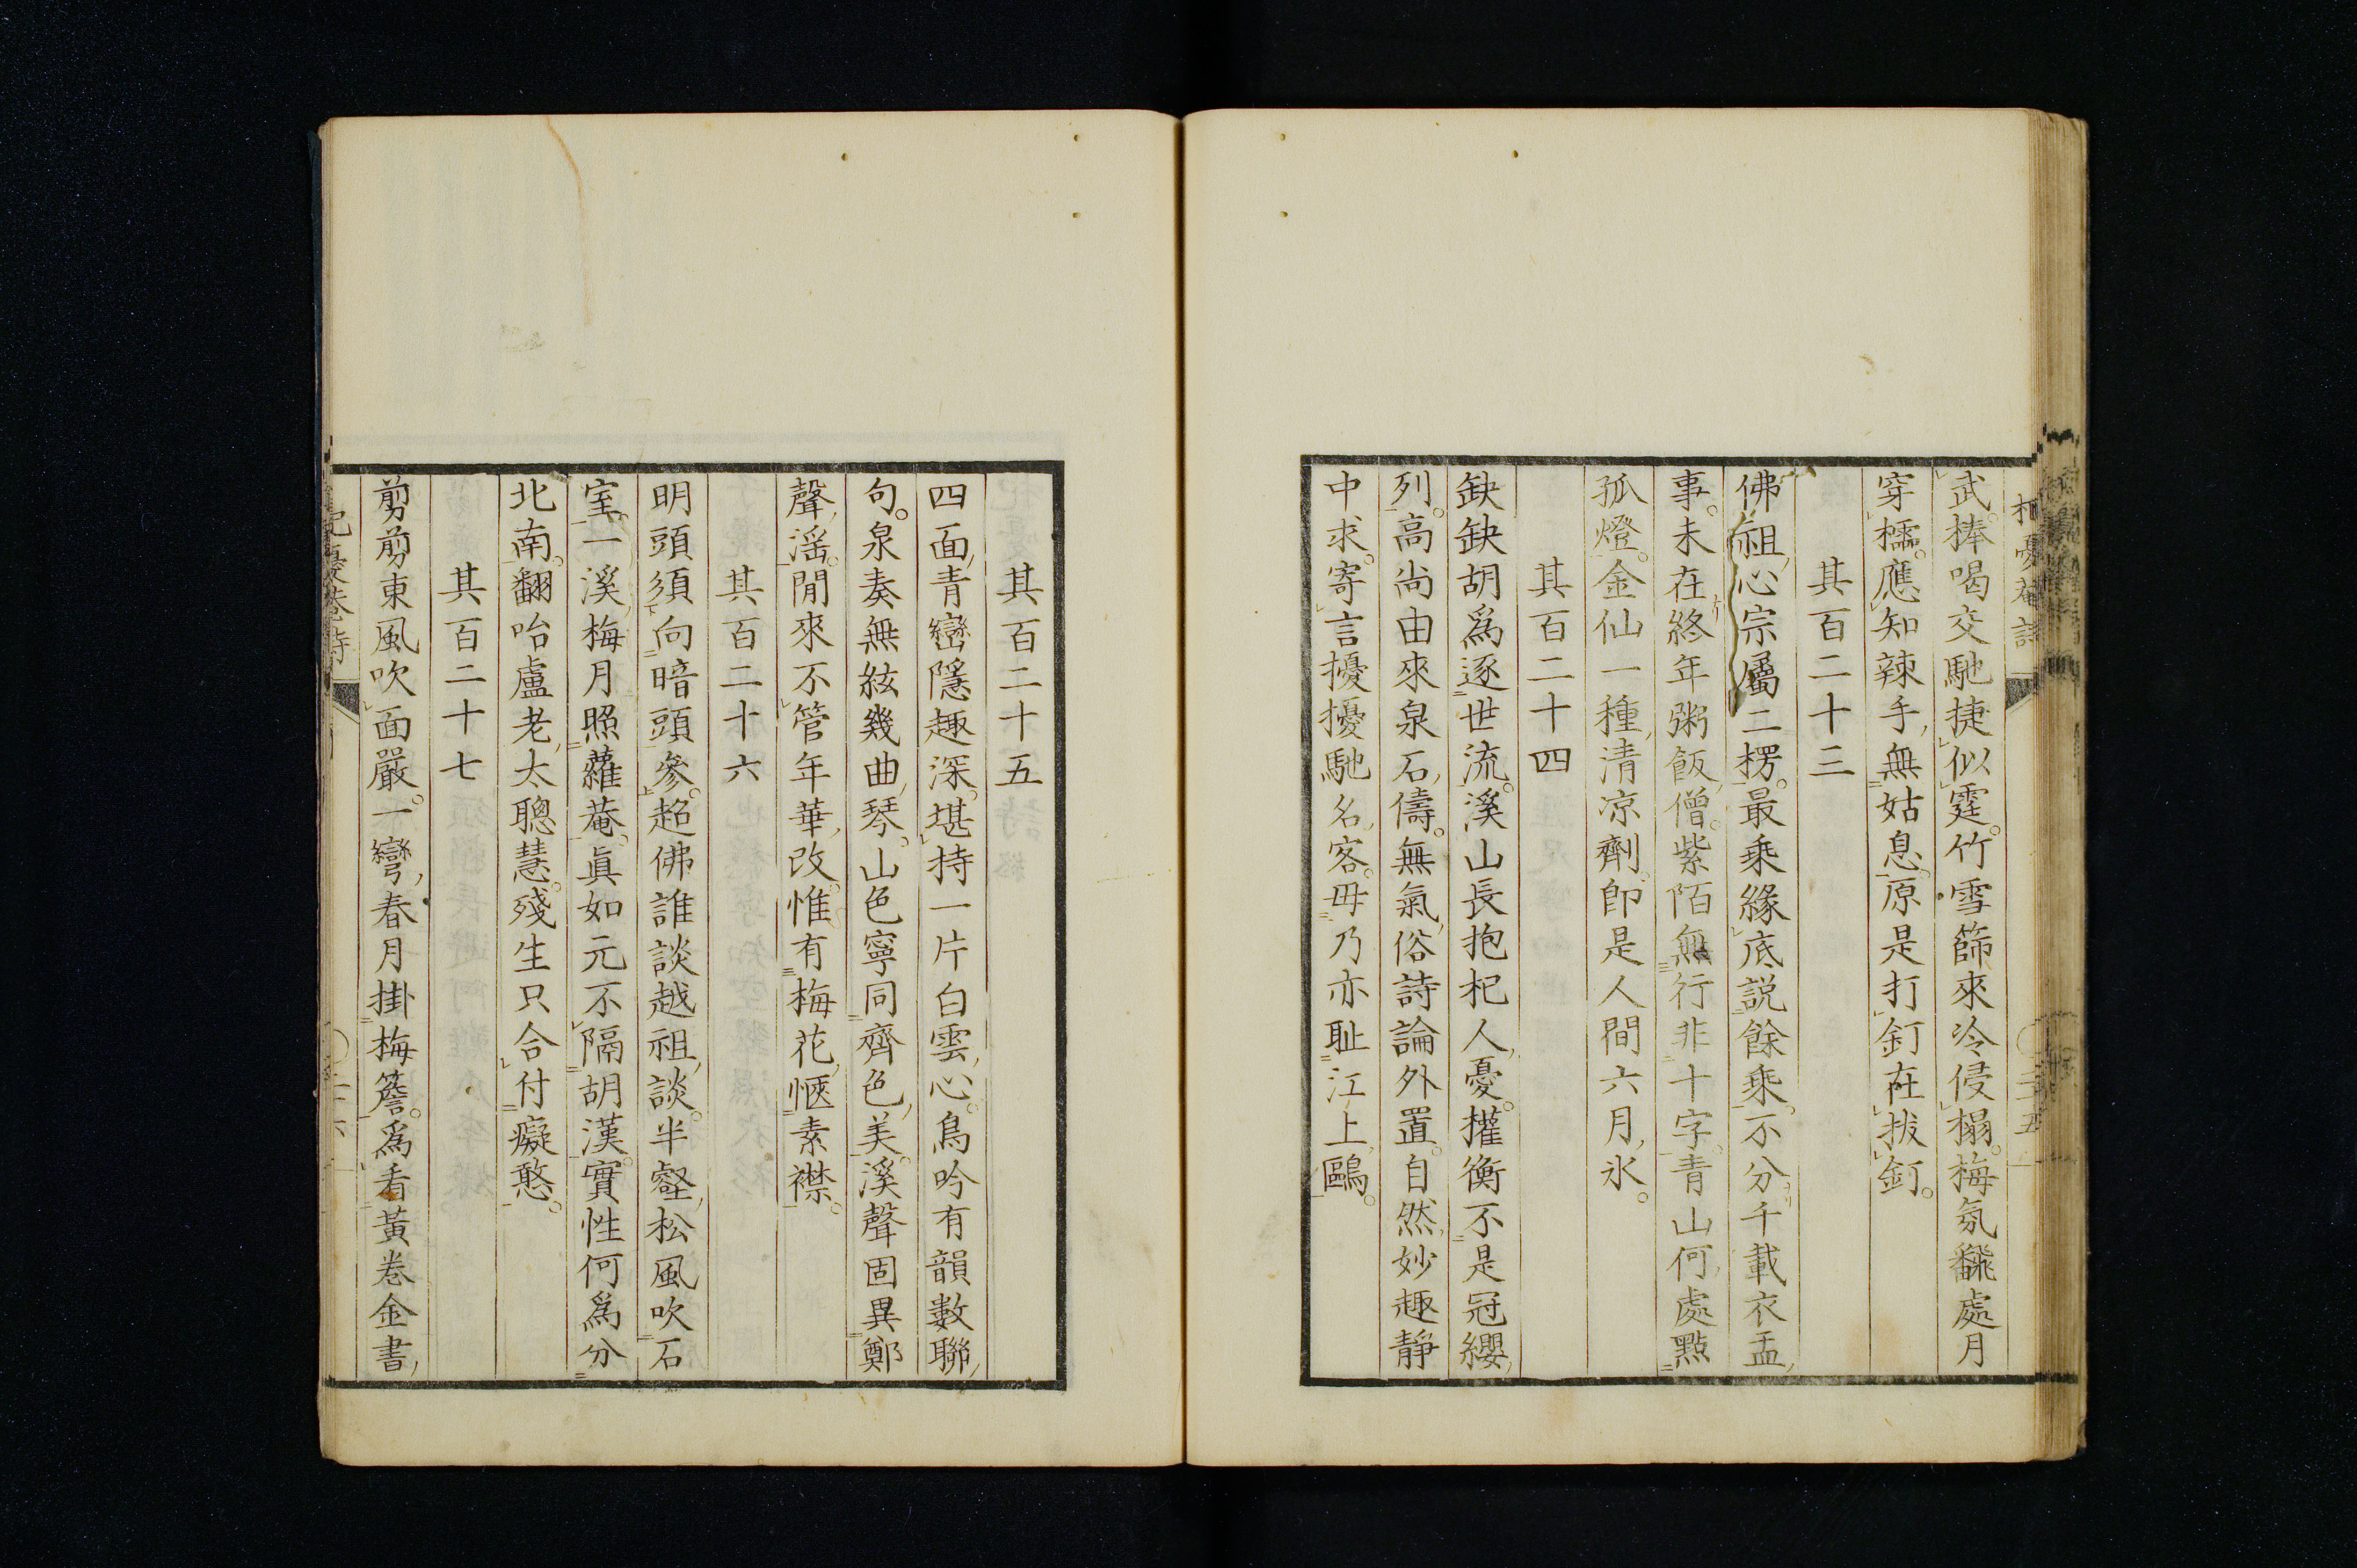 杞憂菴詩
二十五
武棒喝交馳捷似霆竹雪篩來冷侵榻梅氛飜處月
穿櫺應知辣手無姑息原是打釘在拔釘
其百二十三
佛祖心宗屬二楞最乘緣底説餘乘不分千載衣盂
事未在終年粥飯僧紫陌無行非十字青山何處點
孤燈金仙一種清凉劑卽是人間六月氷
其百二十四
缺缺胡爲逐世流溪山長抱杞人憂權衡不是冠纓
列高尚由來泉石儔無氣俗詩論外置自然妙趣靜
中求寄言擾擾馳名客毋乃亦耻江上鷗
其百二十五
四面青巒隱趣深堪持一片白雲心鳥吟有韻數聯
句泉奏無絃幾曲琴山色寧同齊色美溪聲固異鄭
聲滛閒來不管年華改惟有梅花愜素襟
其百二十六
明頭須向暗頭參超佛誰談越祖談半壑松風吹石
室一溪梅月照蘿菴眞如元不隔胡漢實性何爲分
北南翻咍盧老太聰慧殘生只合付癡憨
其百二十七
剪剪東風吹面嚴一彎春月掛梅簷爲看黃卷金書
杞憂菴詩
二十六